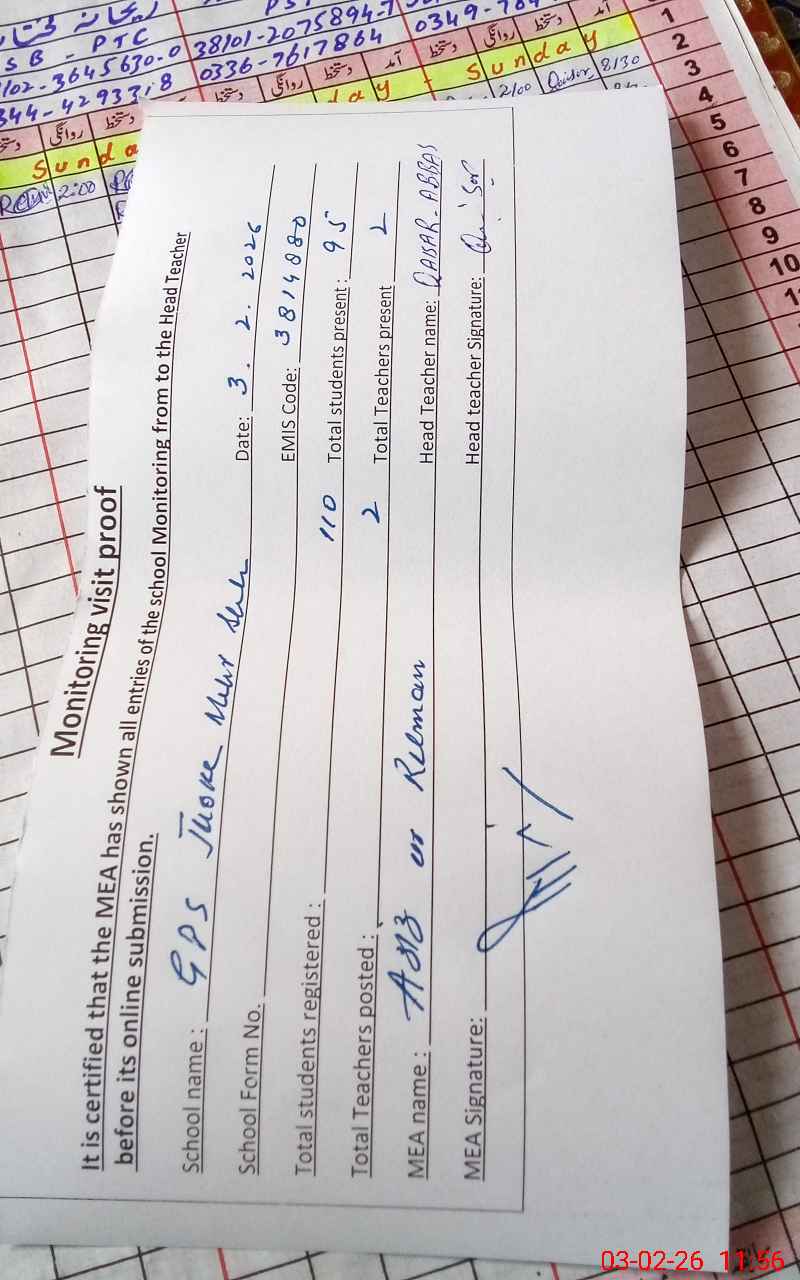 SB - PTC
38101-2075894-7
0349-784
3645630-0
0336-7617864
344-4293318
دستخط روانگی دستخط آمد دستخط روانگی دستخط آمد
Sunday
Sunday
2:00
2/00
8:30
1
2
3
4
5
6
7
8
9
10
Monitoring visit proof
It is certified that the MEA has shown all entries of the school Monitoring from to the Head Teacher
before its online submission.
School name : GPS Jhoke Mehr Date: 3.2.2026
School Form No. EMIS Code: 3814080
Total students registered : 110 Total students present : 95
Total Teachers posted : 2 Total Teachers present 2
MEA name : ur Rehman Head Teacher name: QAISAR-ABBAS
MEA Signature: Head teacher Signature:
03-02-26 11:56